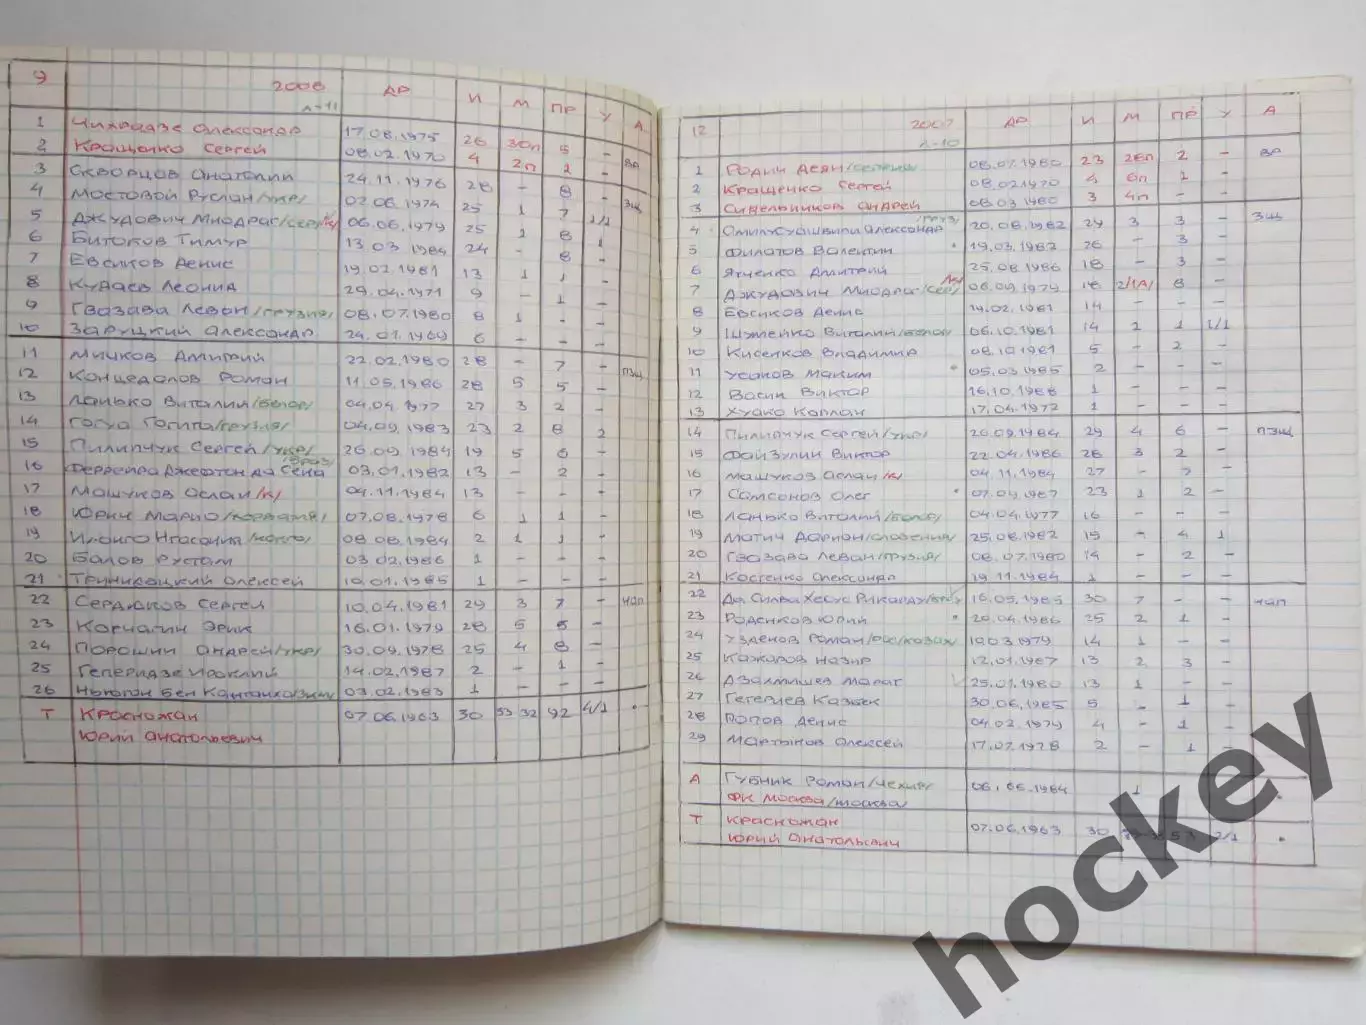 9 2006 ДР И М ПР У А
Л-11
1 Чихрадзе Александр 17.08.1975 26 30п 5 - ВР
2 Крощенко Сергей 08.02.1970 4 2п 2 -
3 Скворцов Анатолий 24.11.1976 28 - 8 - ЗЩ
4 Мостовой Руслан/укр/ 02.06.1974 25 1 7 1/1
5 Джудович Миодраг/сер/ 06.06.1979 25 1 8 1
6 Битоков Тимур 13.03.1984 24 - 8 -
7 Евсиков Денис 19.02.1981 13 1 1 -
8 Кудаев Леонид 29.04.1971 9 - 1 -
9 Гвазава Леван/грузия/ 08.07.1980 8 1 - -
10 Заруцкий Александр 24.01.1969 6 - - -
11 Мичков Дмитрий 22.02.1980 28 - 7 - ПЗЩ
12 Концедалов Роман 11.05.1986 28 5 5 -
13 Ланько Виталий/белор/ 04.04.1977 27 3 2 -
14 Гогуа Гогита/грузия/ 04.09.1983 23 2 8 2
15 Пилипчук Сергей/укр/ 26.09.1984 19 5 6 -
/браз/
16 Феррейра Джефтон да Сена 03.01.1982 13 - 2 -
17 Машуков Аслан/к/ 04.11.1984 13 - - -
18 Юрич Марио/хорватия/ 07.08.1978 6 1 1 -
19 Илонго Нгасания/конго/ 08.08.1984 2 1 1 -
20 Балов Рустам 03.02.1986 1 - - -
21 Триникацкий Алексей 10.01.1985 1 - - -
22 Сердюков Сергей 10.04.1981 29 3 7 - НАП
23 Корчагин Эрик 16.01.1979 28 5 5 -
24 Порошин Андрей/укр/ 30.09.1978 25 4 8 -
25 Геперидзе Ираклий 14.02.1987 2 - 1 -
26 Ньюгон Бен Кантанхо/зим/ 03.02.1983 1 - - -
Т Красножан 07.06.1963 30 53 32 92 4/1 •
Юрий Анатольевич
12 2007 ДР И М ПР У А
Л-10
1 Родич Деян/сербия/ 08.07.1980 23 26п 2 - ВР
2 Кращенко Сергей 08.02.1970 4 6п 1 -
3 Синельников Андрей 08.03.1980 3 4п - -
/груз/
4 Амисулашвили Александр 20.08.1982 29 3 3 - ЗЩ
5 Филатов Валентин 19.03.1982 26 - 3 -
6 Ятченко Дмитрий 25.08.1986 18 - 3 -
7 Джудович Миодраг/сер/ 06.09.1979 16 2/1А/ 8 -
8 Евсиков Денис 19.02.1981 14 - - -
9 Шуменко Виталий/белор/ 06.10.1981 14 1 1 1/1
10 Кисенков Владимир 08.10.1981 5 - 2 -
11 Усанов Максим 05.03.1985 2 - - -
12 Васин Виктор 16.10.1988 1 - - -
13 Хуако Каплан 17.04.1972 1 - - -
14 Пилипчук Сергей/укр/ 26.09.1984 29 4 6 - ПЗЩ
15 Файзулин Виктор 22.04.1986 28 3 2 -
16 Машуков Аслан/к/ 04.11.1984 27 - 7 -
17 Самсонов Олег 07.09.1987 23 1 2 -
18 Ланько Виталий/белор/ 04.04.1977 16 - - -
19 Матич Дарион/словения/ 25.08.1982 15 - 4 1
20 Гвазава Леван/грузия/ 08.07.1980 14 - 2 -
21 Костенко Александр 19.11.1984 1 - - -
22 Да Силва Хесус Рикарду/браз/ 16.05.1985 30 7 - - НАП
23 Роденков Юрий 20.04.1986 25 2 1 -
24 Узденов Роман/рос/казах/ 19.03.1979 14 1 - -
25 Кажаров Назир 12.01.1987 13 2 3 -
26 Дзахмишев Марат 25.01.1980 13 1 - -
27 Гетериев Казбек 30.06.1985 5 - 1 -
28 Попов Денис 04.02.1979 4 - 1 -
29 Мартынов Алексей 17.07.1978 2 - 1 -
А Губник Роман/Чехия/ 06.06.1984 1
ФК Москва/Москва/
Т Красножан 07.06.1963 30 53 2/1 •
Юрий Анатольевич
hockey